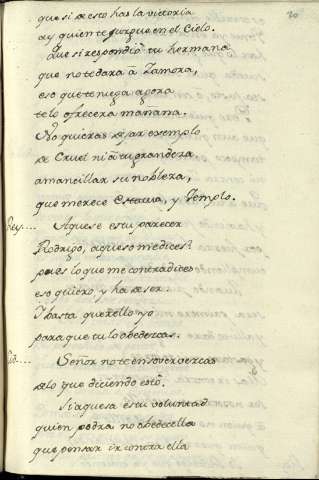 que si de esto has la victoria
ay quien te juzgue en el Cielo.
Que si respondió tu hermana
que no te dara â Zamora,
eso que te niega agora
te lo ofrecera mañana.
No quieras dejar exemplo
de Cruel ni â tu grandeza
amancillar su nobleza,
que merece Estatua, y Templo.
Rey.... Aquese es tu parecer
Rodrigo, aqueso me dices?
pues lo que me contradices
eso quiero, y ha de ser.
Y basta querello yo
para que tu lo obedezcas.
Cid.... Señor no te ensoververzcas
de lo que diciendo estô.
Si aquesa es tu voluntad
quien podra no obedecella
que pensar ir contra ella